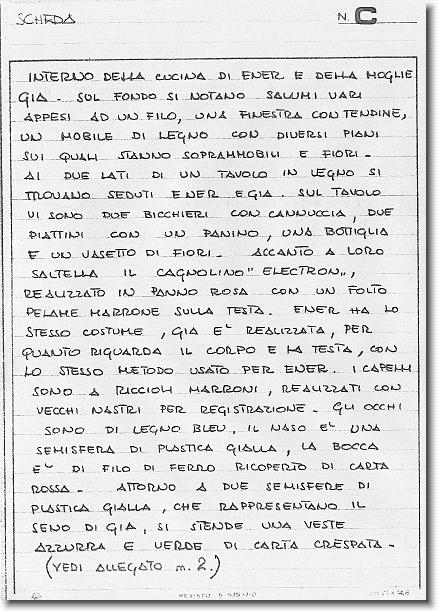 SCHEDA
N. C
INTERNO DELLA CUCINA DI ENER E DELLA MOGLIE
GIA. SUL FONDO SI NOTANO SALUMI VARI
APPESI AD UN FILO, UNA FINESTRA CON TENDINE,
UN MOBILE DI LEGNO CON DIVERSI PIANI
SUI QUALI STANNO SOPRAMMOBILI E FIORI.
AI DUE LATI DI UN TAVOLO IN LEGNO SI
TROVANO SEDUTI ENER E GIA. SUL TAVOLO
VI SONO DUE BICCHIERI CON CANNUCCIA, DUE
PIATTINI CON UN PANINO, UNA BOTTIGLIA
E UN VASETTO DI FIORI. ACCANTO A LORO
SALTELLA IL CAGNOLINO "ELECTRON",
REALIZZATO IN PANNO ROSA CON UN FOLTO
PELAME MARRONE SULLA TESTA. ENER HA LO
STESSO COSTUME, GIA E' REALIZZATA, PER
QUANTO RIGUARDA IL CORPO E LA TESTA, CON
LO STESSO METODO USATO PER ENER. I CAPELLI
SONO A RICCIOLI MARRONI, REALIZZATI CON
VECCHI NASTRI PER REGISTRAZIONE. GLI OCCHI
SONO DI LEGNO BLEU, IL NASO E' UNA
SEMISFERA DI PLASTICA GIALLA, LA BOCCA
E' DI FILO DI FERRO RICOPERTO DI CARTA
ROSSA. ATTORNO A DUE SEMISFERE DI
PLASTICA GIALLA, CHE RAPPRESENTANO IL
SENO DI GIA, SI STENDE UNA VESTE
AZZURRA E VERDE DI CARTA CRESPATA.
(VEDI ALLEGATO n. 2.)